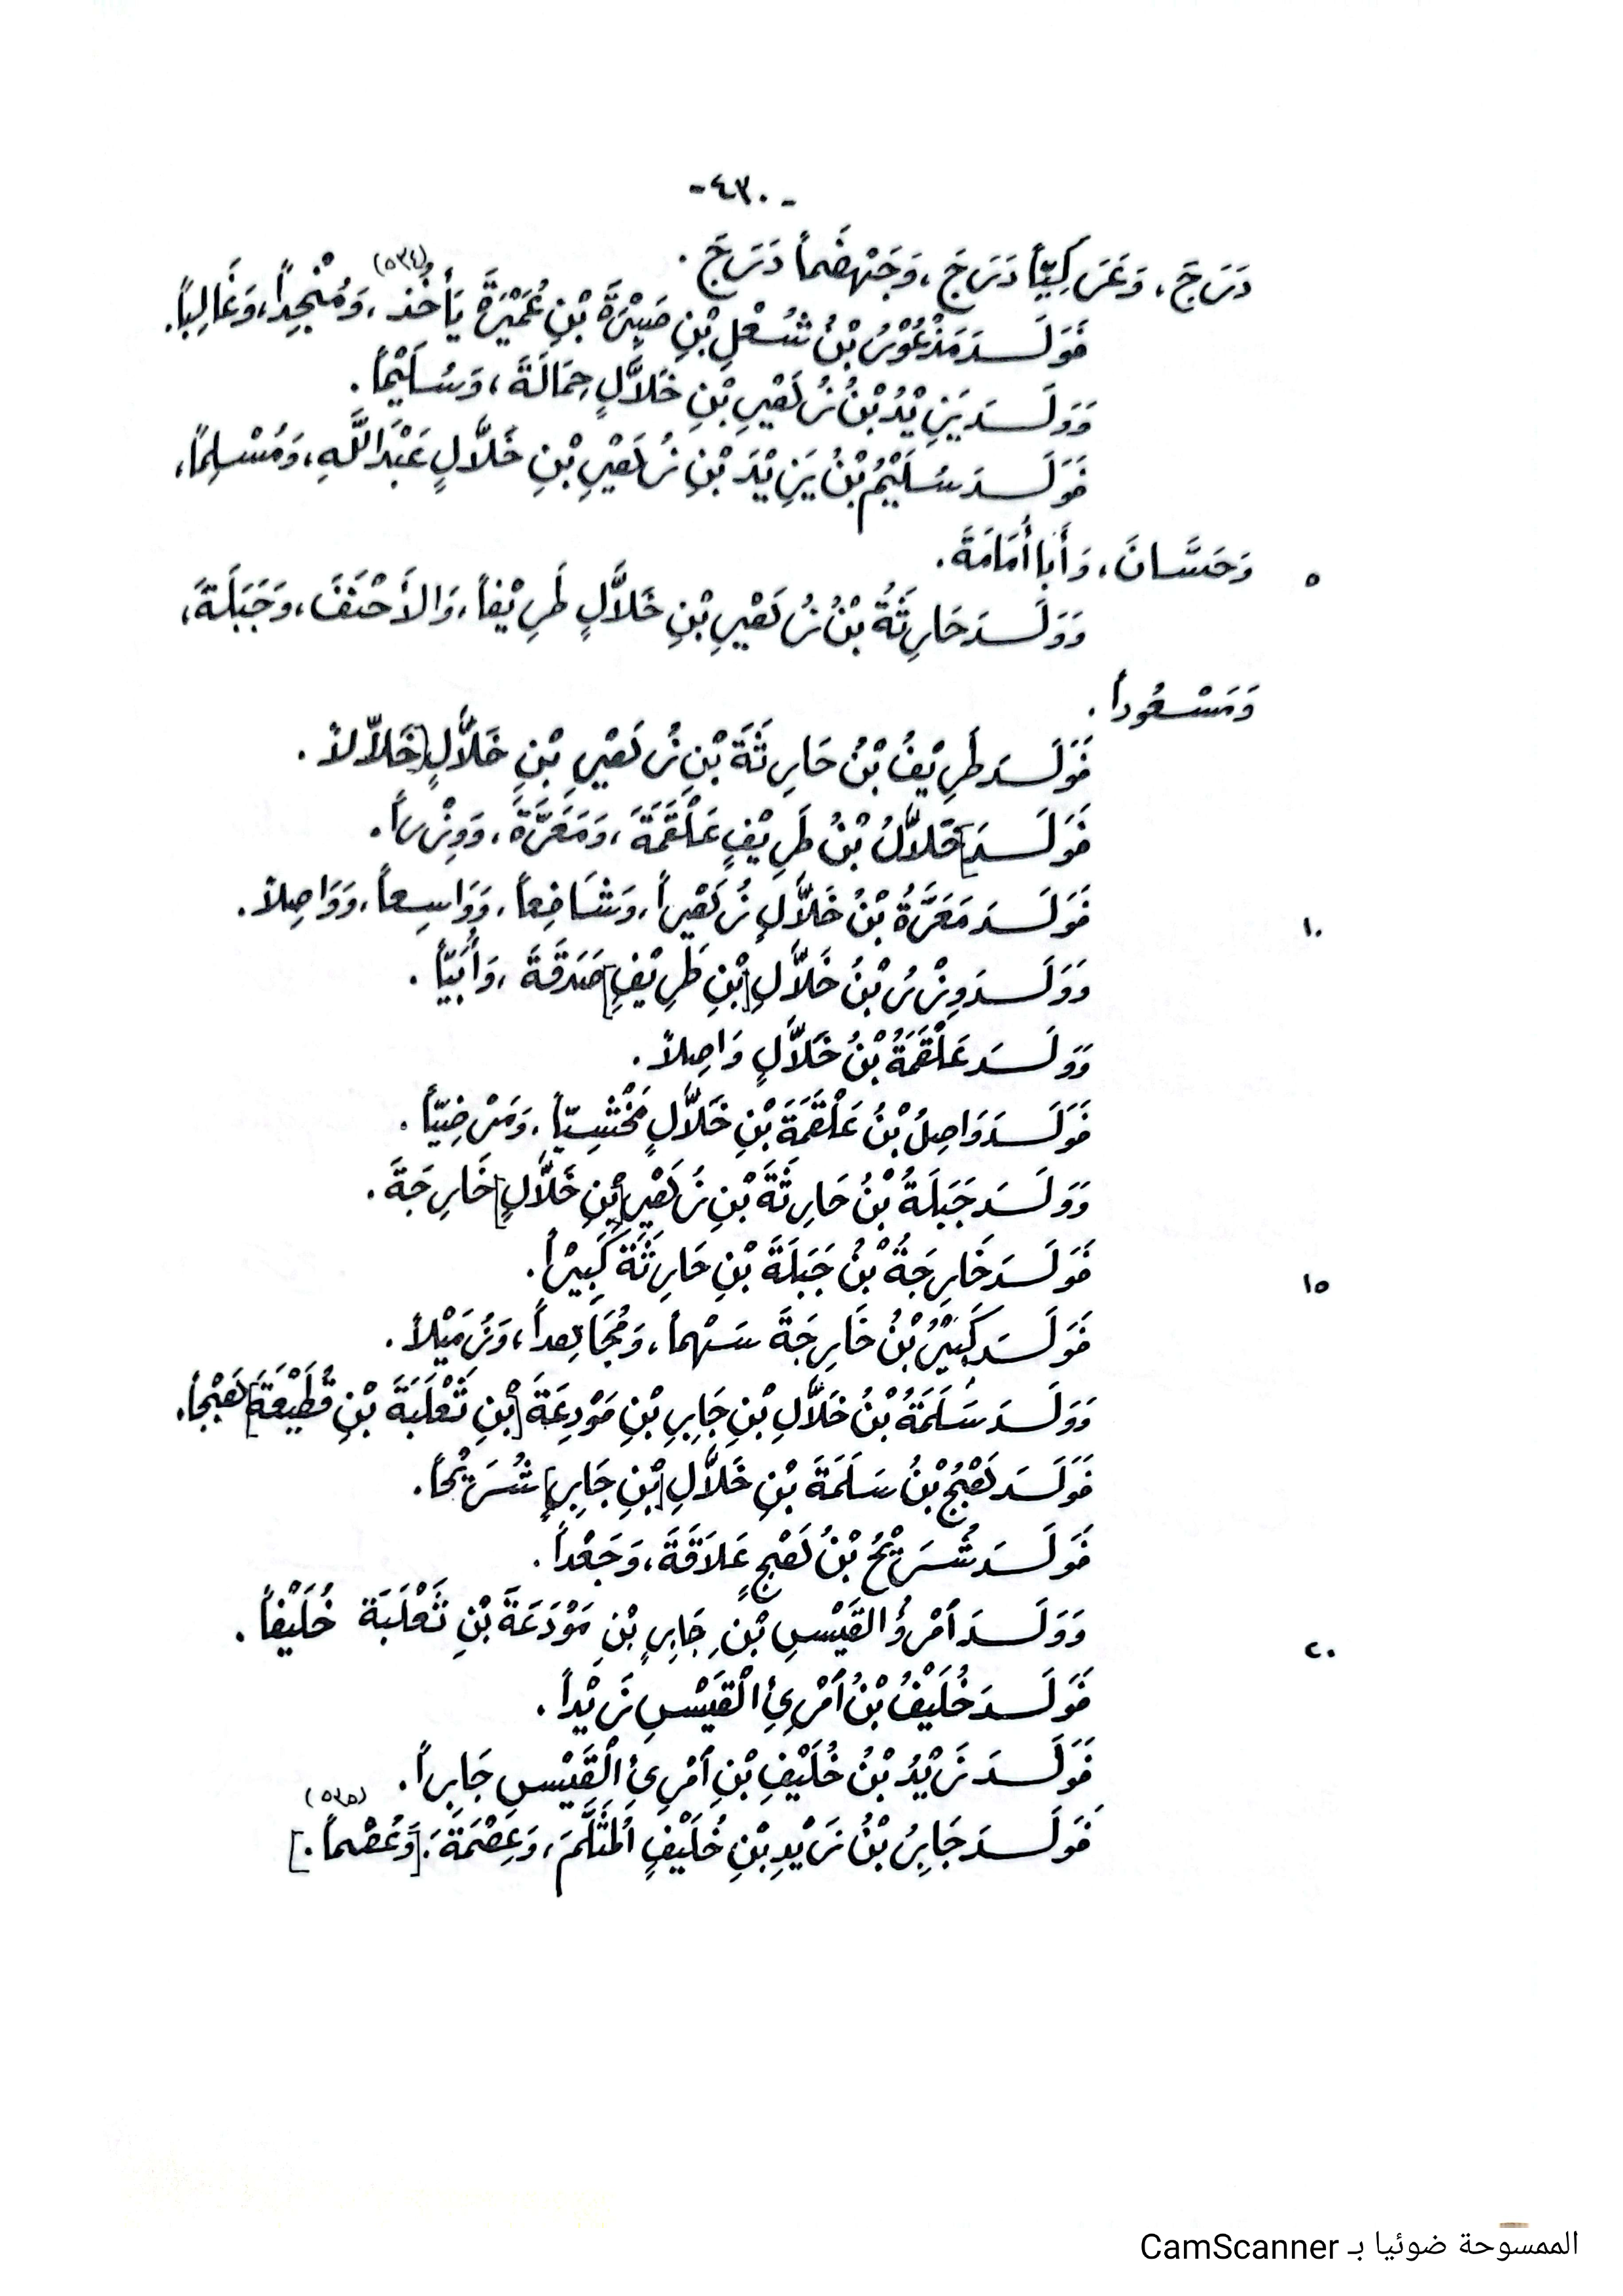 -٤٣٠-
دَرَجَ، وَعَرَكِيّاً دَرَجَ، وَجَهْضَماً دَرَجَ.
فَوَلَدَ مَذْعُوْرُ بْنُ شُعْلِ بْنِ صَبِرَةَ بْنِ عُمَيْرَةَ يَأْخُذ (٥٣٤)، وَمُنْجِداً، وَغَالِباً.
وَوَلَدَ يَزِيْدُ بْنُ زُهَيْرِ بْنِ خَلاَّلٍ حِمَالَةَ، وَسُلَيْماً.
فَوَلَدَ سُلَيْمُ بْنُ يَزِيْدَ بْنِ زُهَيْرِ بْنِ خَلاَّلٍ عَبْدَ اللَّهِ، وَمُسْلِماً،
وَحَسَّانَ، وَأَبَا أُمَامَةَ.
٥
وَوَلَدَ حَارِثَةُ بْنُ زُهَيْرِ بْنِ خَلاَّلٍ طَرِيْفاً، وَالأَحْنَفَ، وَجَبَلَةَ،
وَمَسْعُوداً.
فَوَلَدَ طَرِيْفُ بْنُ حَارِثَةَ بْنِ زُهَيْرِ بْنِ خَلاَّلٍ [خَلاَّلاً.
فَوَلَدَ] خَلاَّلُ بْنُ طَرِيْفٍ عَلْقَمَةَ، وَمَعَرَّةَ، وَوِزْراً.
فَوَلَدَ مَعَرَّةُ بْنُ خَلاَّلٍ زُهَيْراً، وَشَافِعاً، وَوَاسِعاً، وَوَاصِلاً.
١٠
وَوَلَدَ وِزْرُ بْنُ خَلاَّلِ [بْنِ طَرِيْفٍ] صَدَقَةَ، وَأُبَيّاً.
وَوَلَدَ عَلْقَمَةُ بْنُ خَلاَّلٍ وَاصِلاً.
فَوَلَدَ وَاصِلُ بْنُ عَلْقَمَةَ بْنِ خَلاَّلٍ مَخْشِيّاً، وَمَرْضِيّاً.
وَوَلَدَ جَبَلَةُ بْنُ حَارِثَةَ بْنِ زُهَيْرِ [بْنِ خَلاَّلٍ] خَارِجَةَ.
فَوَلَدَ خَارِجَةُ بْنُ جَبَلَةَ بْنِ حَارِثَةَ كَبِيْراً.
١٥
فَوَلَدَ كَبِيْرُ بْنُ خَارِجَةَ سَهْماً، وَمُجَاهِداً، وَزُمَيْلاً.
وَوَلَدَ سَلَمَةُ بْنُ خَلاَّلِ بْنِ جَابِرِ بْنِ مَوْدِعَةَ [بْنِ ثَعْلَبَةَ بْنِ قُطَيْعَةَ] هَبْجاً.
فَوَلَدَ هَبْجُ بْنُ سَلَمَةَ بْنِ خَلاَّلِ [بْنِ جَابِرٍ] شُرَيْحاً.
فَوَلَدَ شُرَيْحُ بْنُ هَبْجٍ عَلاَقَةَ، وَجَعْداً.
وَوَلَدَ آمْرُؤُ القَيْسِ بْنِ جَابِرِ بْنِ مَوْدَعَةَ بْنِ ثَعْلَبَةَ خُلَيْفاً.
٢٠
فَوَلَدَ خُلَيْفُ بْنُ آمْرِئِ الْقَيْسِ زَيْداً.
فَوَلَدَ زَيْدُ بْنُ خُلَيْفِ بْنِ آمْرِئِ الْقَيْسِ جَابِراً.
فَوَلَدَ جَابِرُ بْنُ زَيْدِ بْنِ خُلَيْفٍ المُثَلَّمَ، وَعِصْمَةَ، [وَعُصْماً.] (٥٣٥)
الممسوحة ضوئيا بـ CamScanner